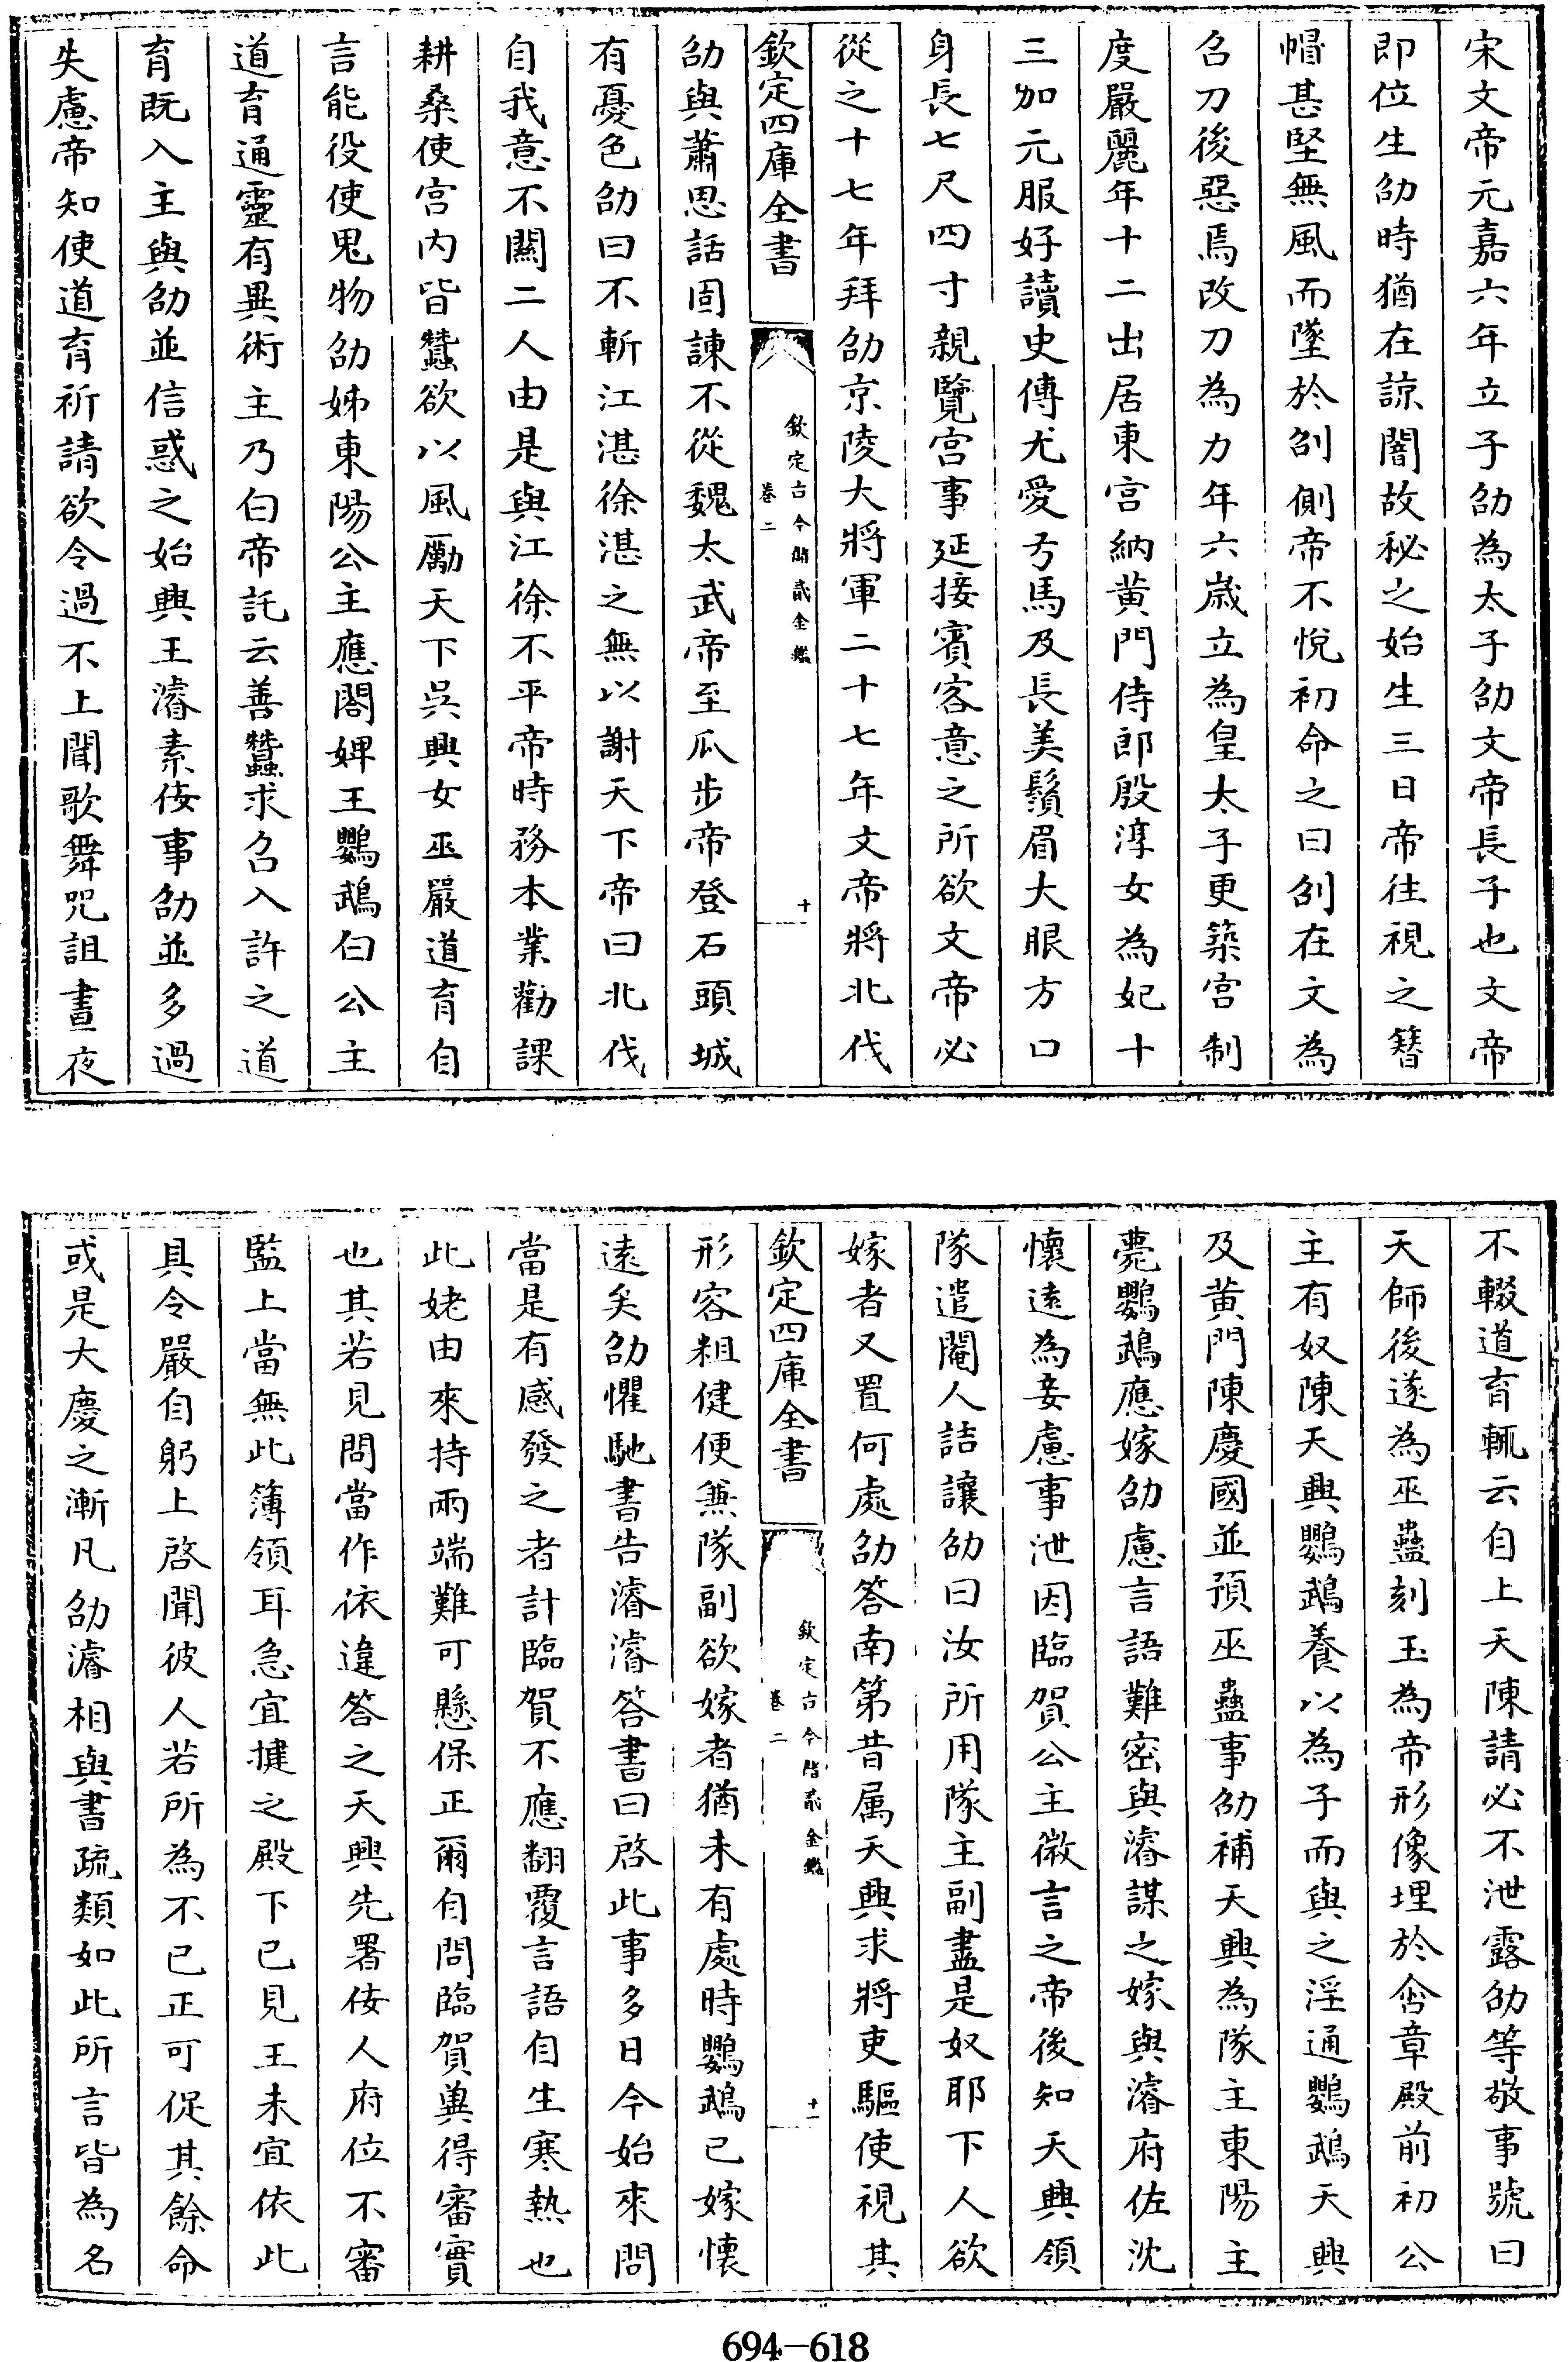 宋文帝元嘉六年立子劭為太子劭文帝長子也文帝
即位生劭時猶在諒闇故秘之始生三日帝往視之簪
帽甚堅無風而墜於劭側帝不悅初命之曰劭在文為
召刀後惡焉改刀為力年六歲立為皇太子更築宫制
度嚴麗年十二出居東宫納黄門侍郎殷淳女為妃十
三加元服好讀史傳尤愛弓馬及長美鬚眉大眼方口
身長七尺四寸親覽宫事延接賓客意之所欲文帝必
從之十七年拜劭京陵大將軍二十七年文帝將北伐
欽定四庫全書
欽定古今儲貳金鑑
卷二
十
劭與蕭思話固諫不從魏太武帝至瓜步帝登石頭城
有憂色劭曰不斬江湛徐湛之無以謝天下帝曰北伐
自我意不關二人由是與江徐不平帝時務本業勸課
耕桑使宫内皆蠶欲以風勵天下吳興女巫嚴道育自
言能役使鬼物劭姊東陽公主應閤婢王鸚鵡白公主
道育通靈有異術主乃白帝託云善蠶求召入許之道
育既入主與劭並信惑之始興王濬素佞事劭並多過
失慮帝知使道育祈請欲令過不上聞歌舞咒詛晝夜
不輟道育輒云自上天陳請必不泄露劭等敬事號曰
天師後遂為巫蠱刻玉為帝形像埋於含章殿前初公
主有奴陳天興鸚鵡養以為子而與之淫通鸚鵡天興
及黄門陳慶國並預巫蠱事劭補天興為隊主東陽主
薨鸚鵡應嫁劭慮言語難密與濬謀之嫁與濬府佐沈
懷遠為妾慮事泄因臨賀公主微言之帝後知天興領
隊遣閹人詰讓劭曰汝所用隊主副盡是奴耶下人欲
嫁者又置何處劭答南第昔属天興求將吏驅使視其
欽定四庫全書
欽定古今儲貳金鑑
卷二
十一
形容粗健便兼隊副欲嫁者猶未有處時鸚鵡已嫁懷
遠矣劭懼馳書告濬濬答書曰啓此事多日今始來問
當是有感發之者計臨賀不應翻覆言語自生寒熱也
此姥由來持兩端難可懸保正爾自問臨賀冀得審實
也其若見問當作依違答之天興先署佞人府位不審
監上當無此簿領耳急宜揵之殿下已見王未宜依此
具令嚴自躬上啓聞彼人若所為不已正可促其餘命
或是大慶之漸凡劭濬相與書疏類如此所言皆為名
694-618